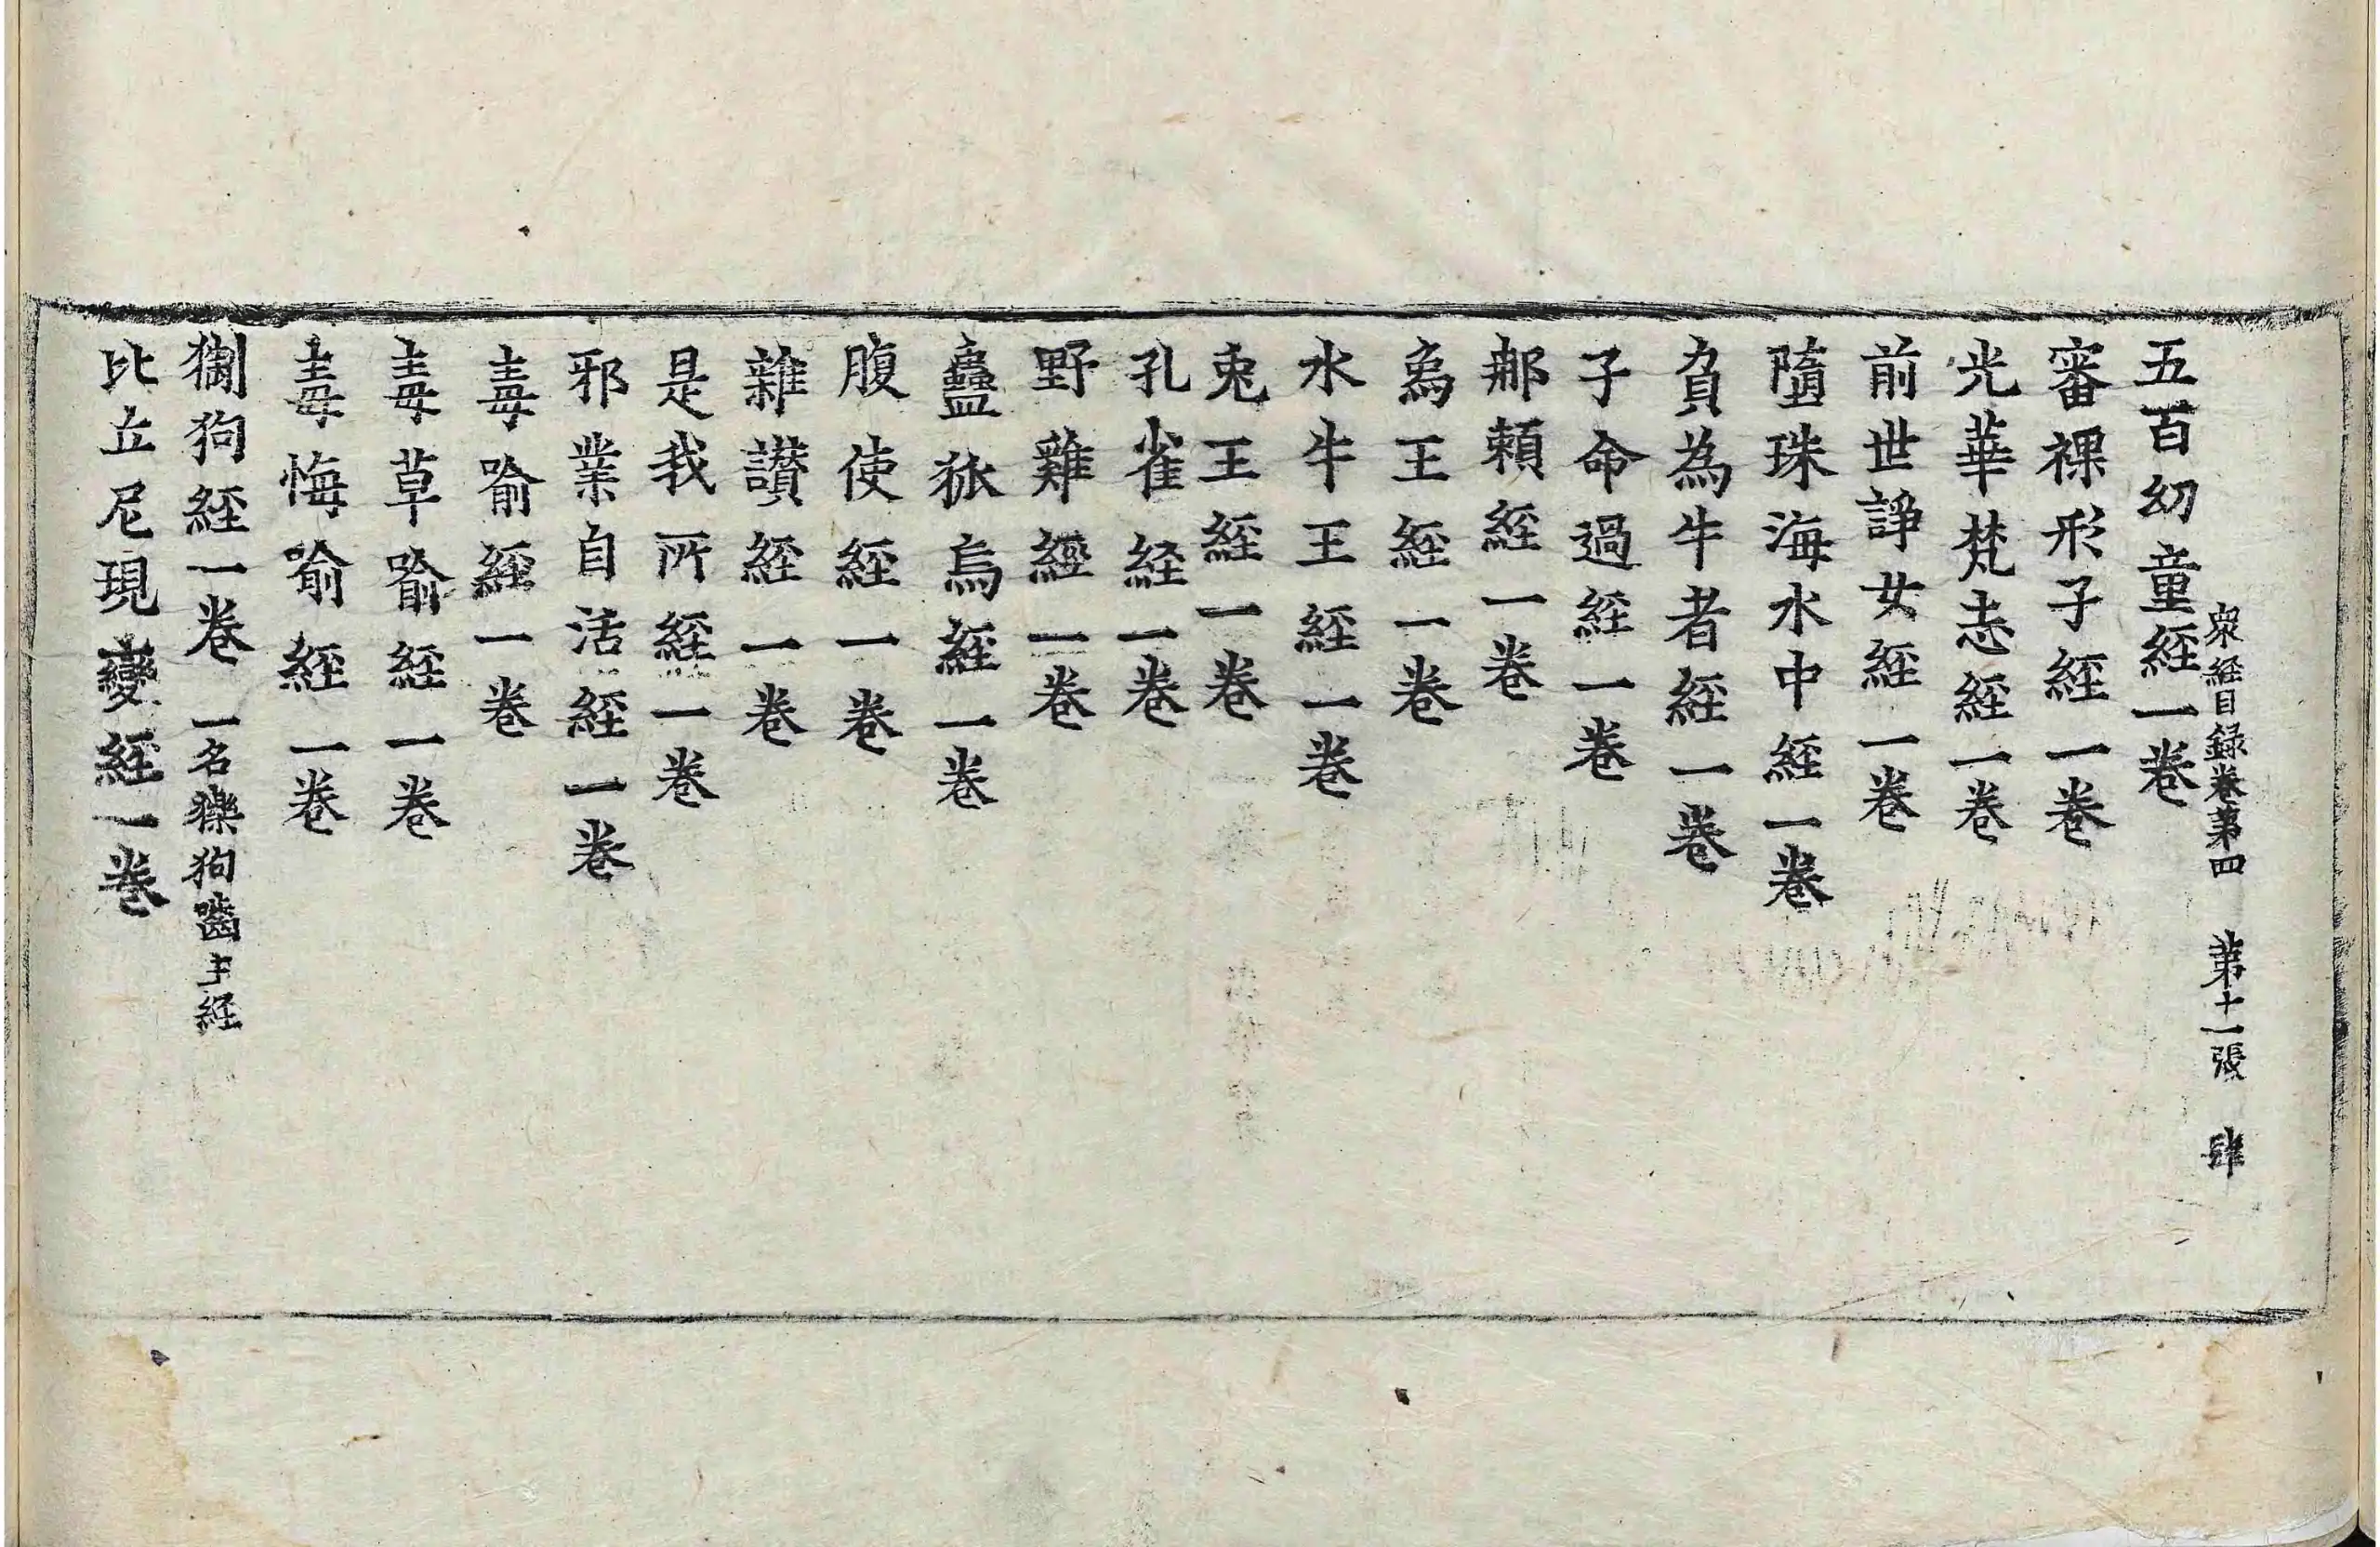 衆經目録卷第四　第十一張　肆
五百幼童經一卷
審裸形子經一卷
光華梵志經一卷
前世諍女經一卷
墮珠海水中經一卷
負為牛者經一卷
子命過經一卷
郍頼經一卷
烏王經一卷
水牛王經一卷
兎王經一卷
孔雀経一卷
野雞經一卷
蠱狐烏經一卷
腹使經一卷
雜讃經一卷
是我所經一卷
邪業自活經一卷
毒喻經一卷
毒草喻經一卷
毒悔喻經一卷
猘狗經一卷 一名㹱狗嚙主経
比丘尼現變經一卷